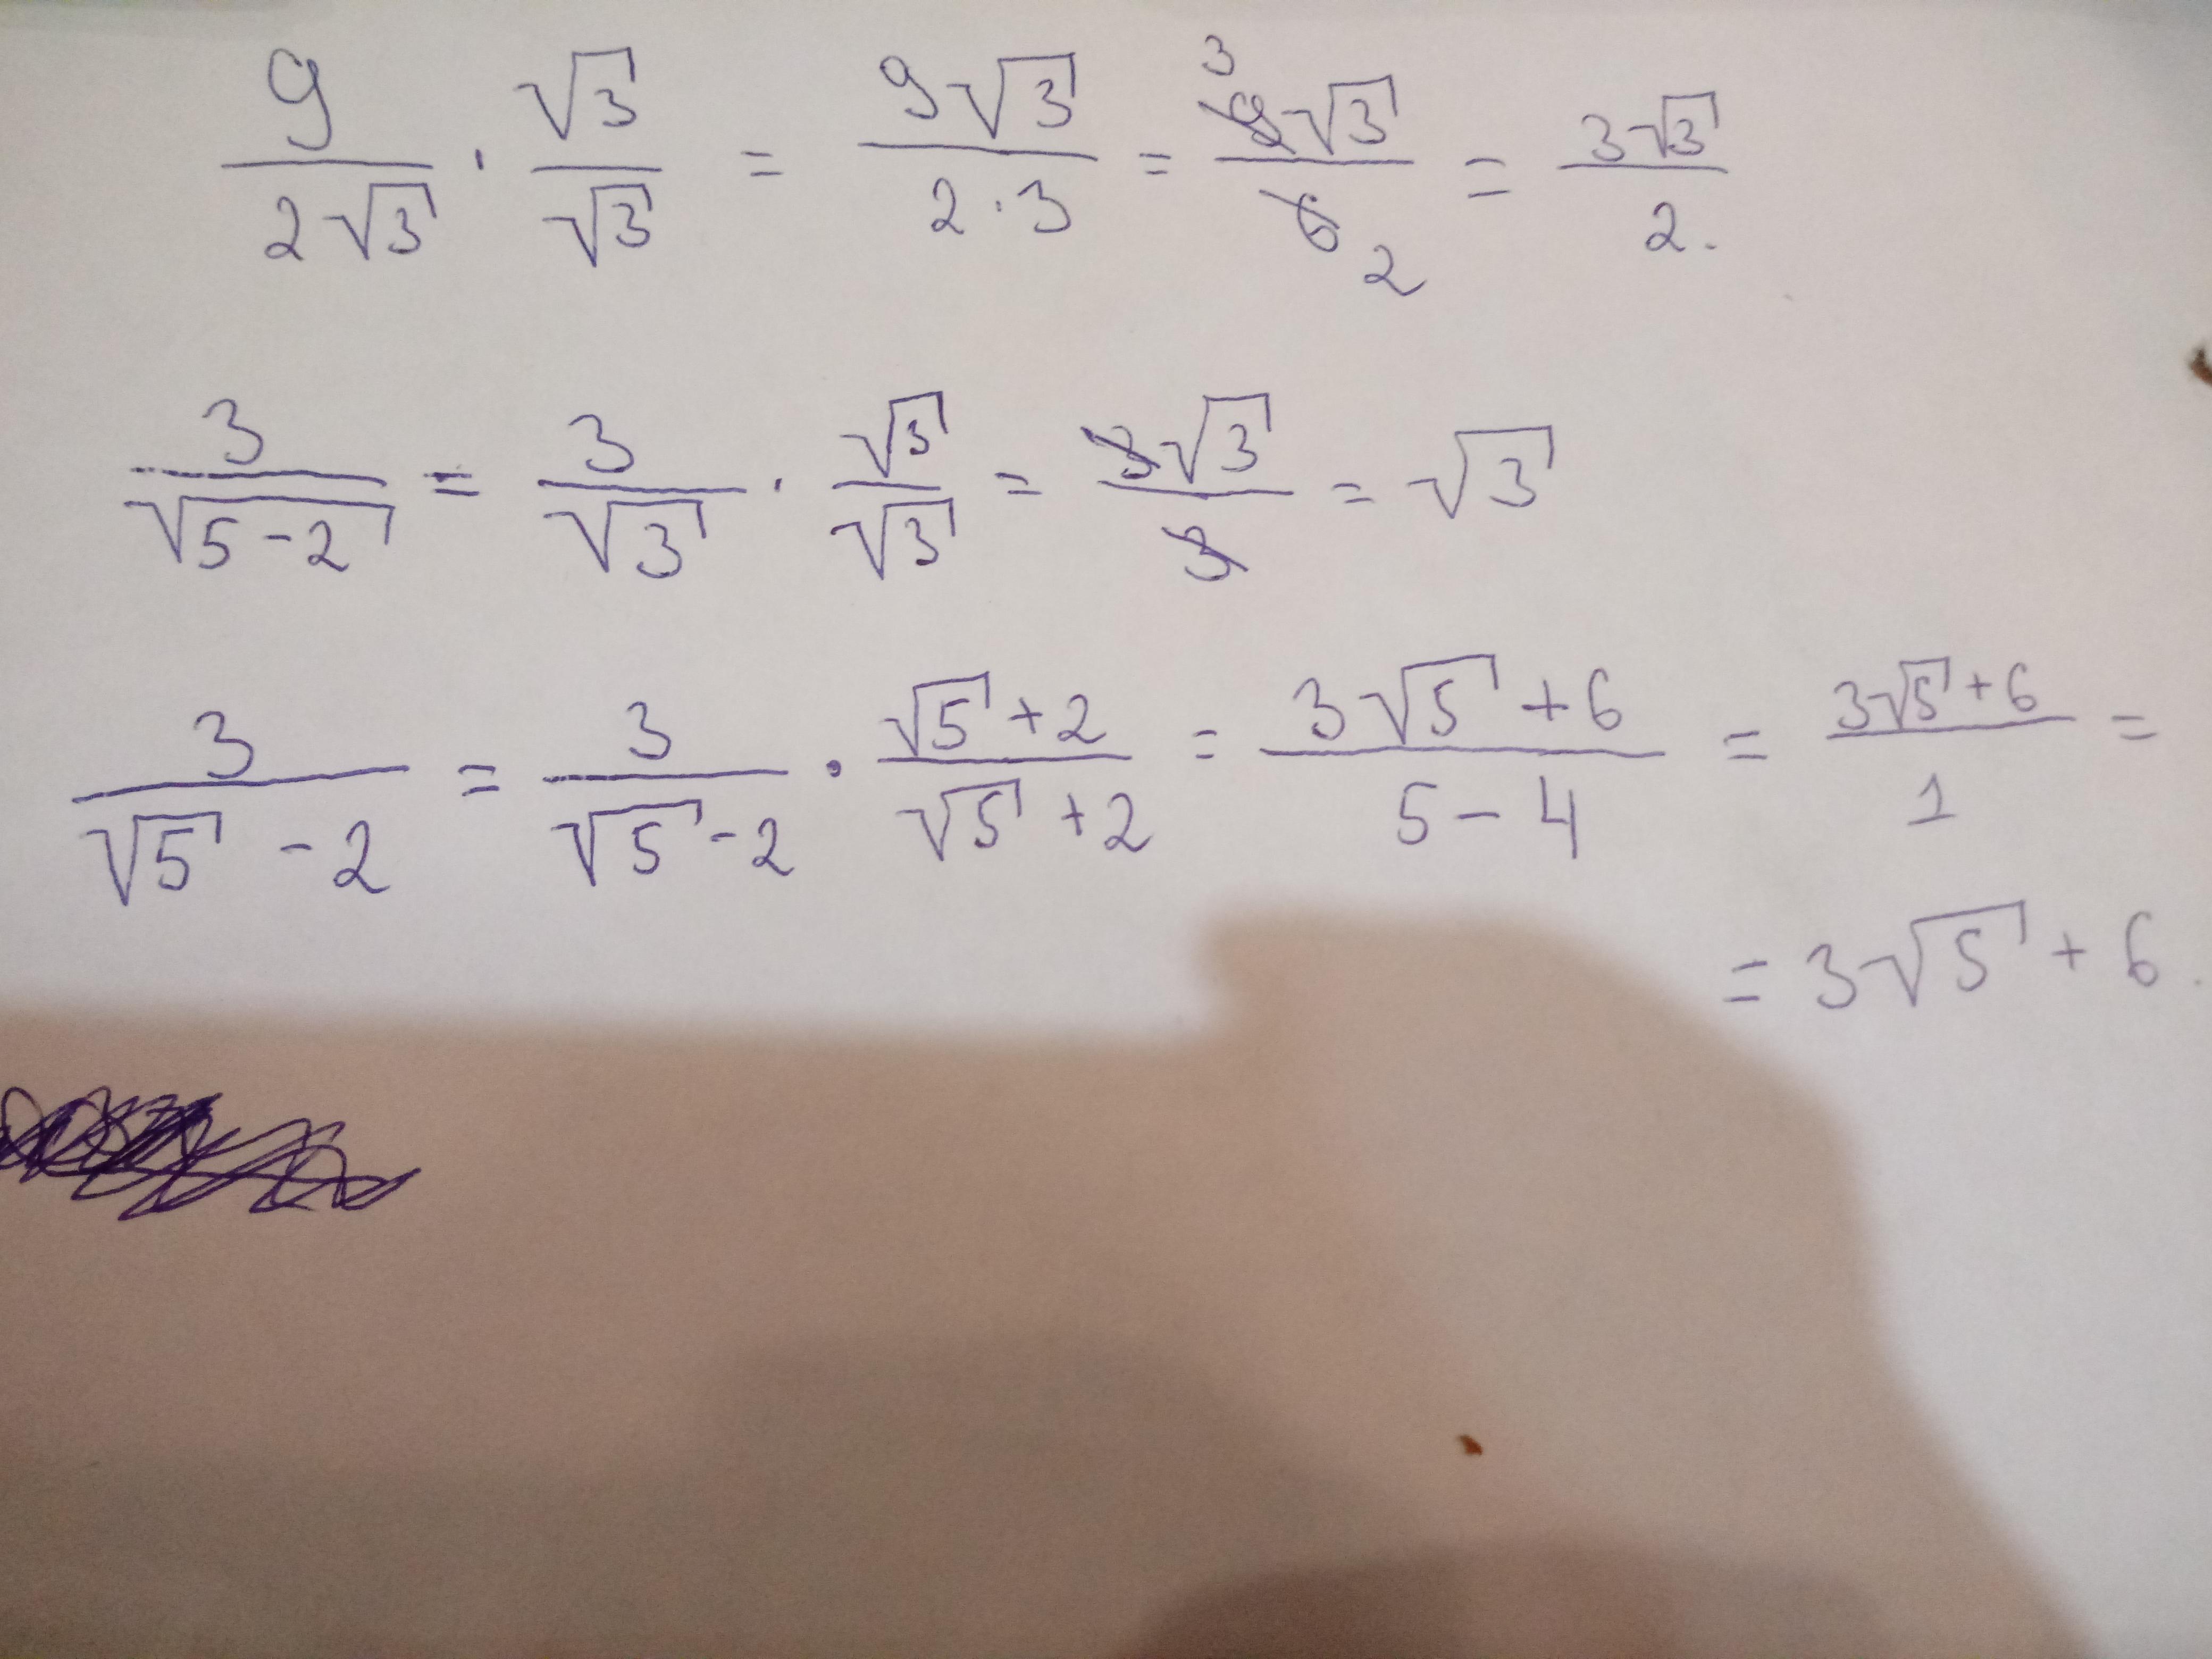 9/(2√3) · √3/√3 = 9√3/(2·3) = 9√3/6 3 2 = 3√3/2.
3/√(5-2) = 3/√3 · √3/√3 = 3√3/3 = √3
3/(√5-2) = 3/(√5-2) · (√5+2)/(√5+2) = (3√5+6)/(5-4) = (3√5+6)/1 =
= 3√5+6.